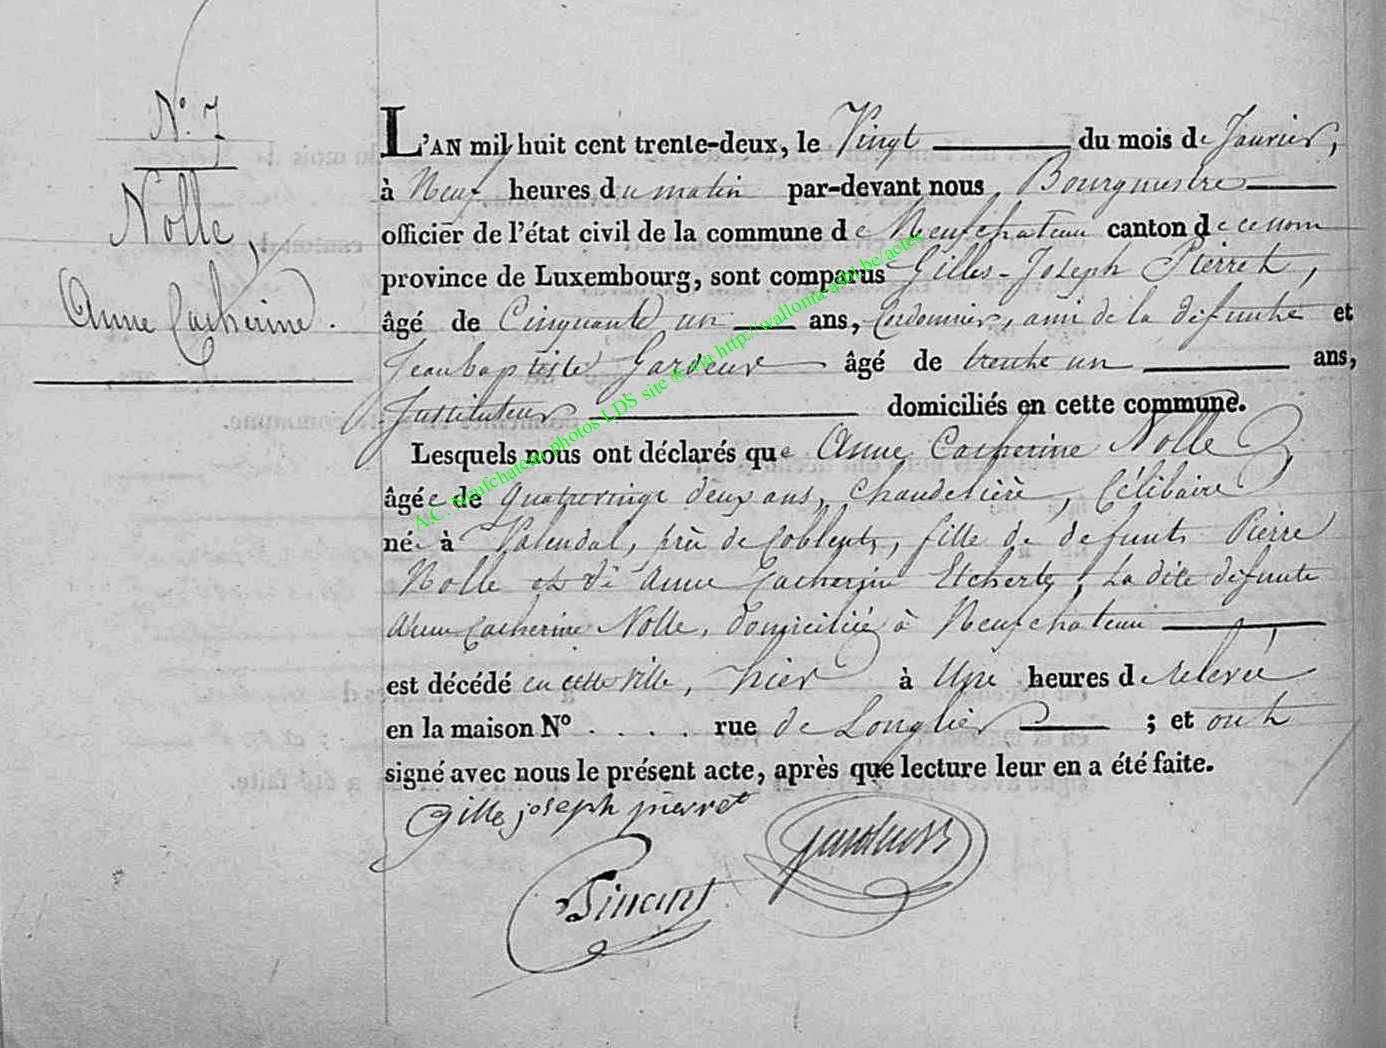 N°. 7
Nolle,
Anne Catherine.
L'AN mil huit cent trente-deux, le Vingt du mois de Janvier,
à Neuf heures du matin par-devant nous Bourgmestre
officier de l'état civil de la commune de Neufchateau canton de ce nom
province de Luxembourg, sont comparus Gilles-Joseph Pierret,
âgé de Cinquante un ans, Cordonnier, ami de la défunte et
Jeanbaptiste Gardeur âgé de trente un ans,
Instituteur domiciliés en cette commune.
Lesquels nous ont déclarés que Anne Catherine Nolle
âgée de quatrevingt deux ans, Chandelière, Célibaire
née à Valendal, prè de Coblents, fille de defunts Pierre
Nolle et de Anne Catherine Etcherte, La dite defunte
Anne Catherine Nolle, domiciliée à Neufchateau
est décédé en cette ville, hier à Une heures de relevée
en la maison N° . . . . rue de Longlier ; et ont
signé avec nous le présent acte, après que lecture leur en a été faite.
Gille joseph pierret
Gardeur
Pincint
A.C. Neufchateau photos LDS site & via http://wallonia-asbl.be/actes